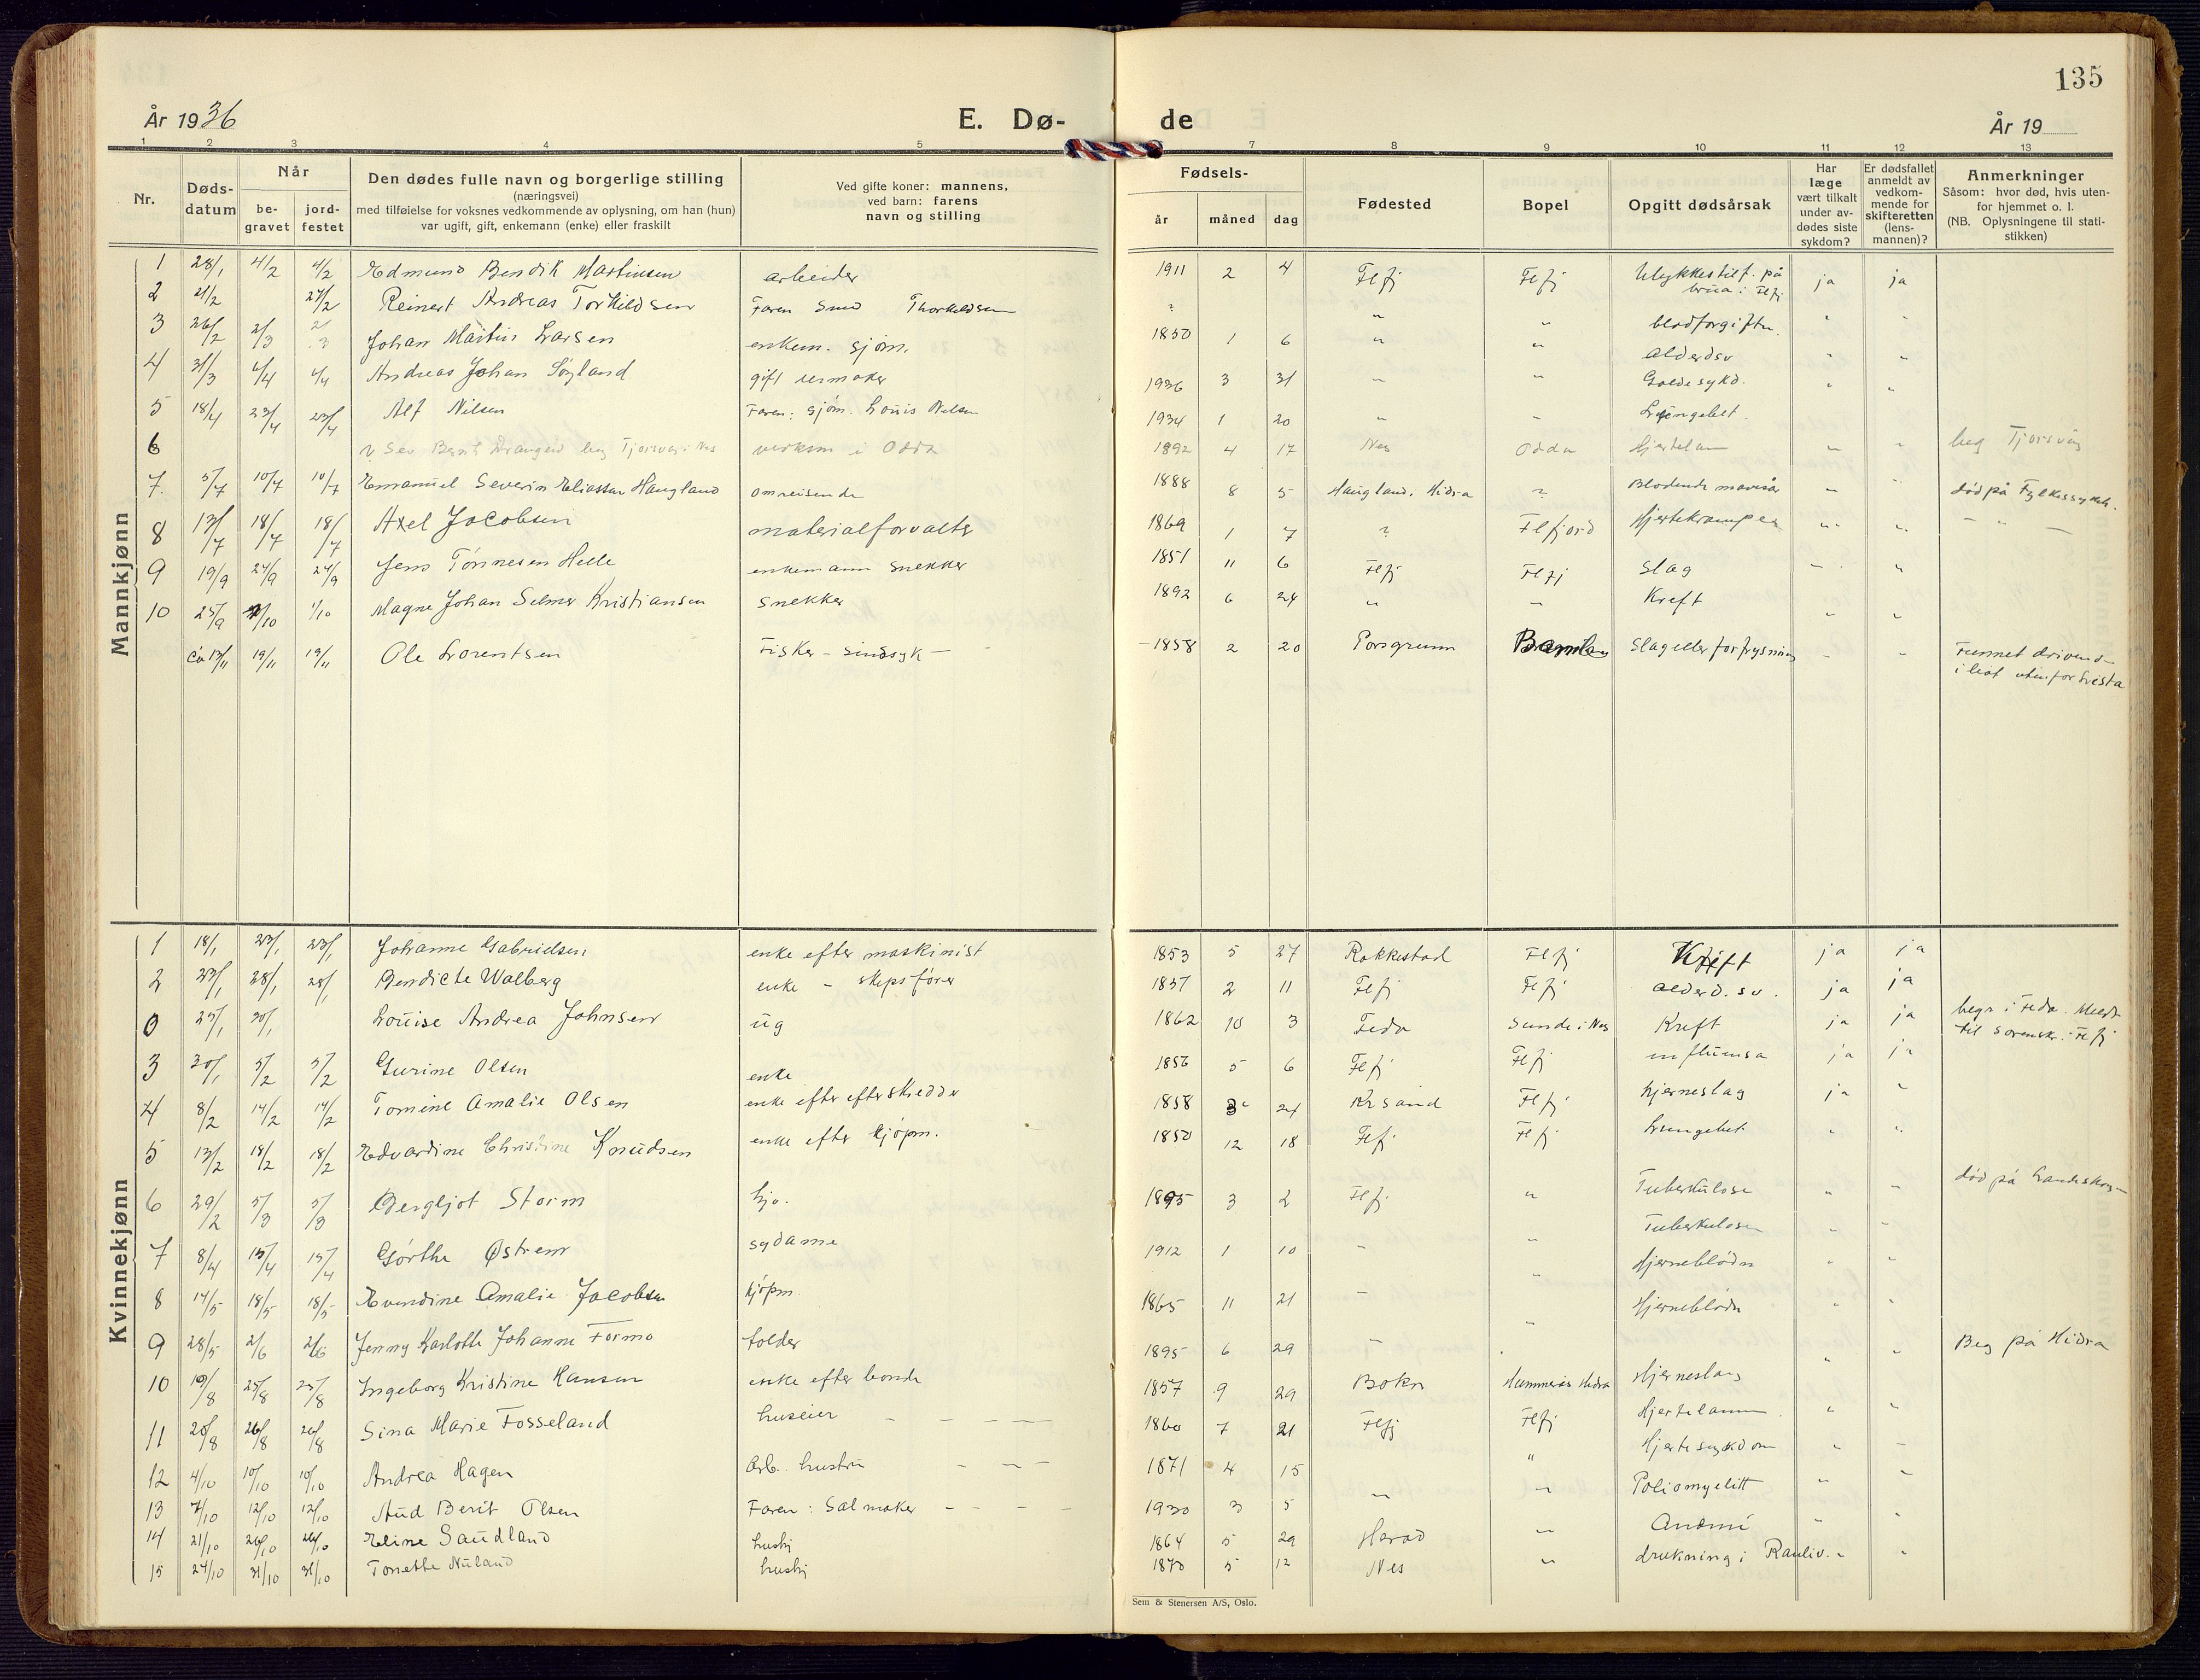 135
År 1936
E. Dø-
de
År 19
1 2 3 4 5 7 8 9 10 11 12 13
Nr.
Døds-
datum
Når
be-
gravet
jord-
festet
Den dødes fulle navn og borgerlige stilling
(næringsvei)
med tilføielse for voksnes vedkommende av oplysning, om han (hun)
var ugift, gift, enkemann (enke) eller fraskilt
Ved gifte koner: mannens,
ved barn: farens
navn og stilling
Fødsels-
år måned dag
Fødested
Bopel
Opgitt dødsårsak
Har
læge
vært tilkalt
under av-
dødes siste
sykdom?
Er dødsfallet
anmeldt av
vedkom-
mende for
skifteretten
(lens-
mannen)?
Anmerkninger
Såsom: hvor død, hvis uten-
for hjemmet o. l.
(NB. Oplysningene til stati-
stikken)
Mannkjønn
1 28/1 4/2 4/2 Edmund Bendik Martinsen arbeider 1911 2 4 Flfj Flfj Ulykkestilf. på ja ja
brua i Flfj
2 21/2 27/2 Reinert Andreas Torkildsen Faren Smed Thorkildsen ? " " blodforgiftn. " "
3 26/2 2/3 Johan Martin Larsen enkem. sjøm. 1850 1 6 " " alderdsv " "
4 31/3 4/4 4/4 Andreas Johan Søyland gift urmaker 1936 3 31 " " Galdesykd. " "
5 18/4 23/4 23/4 Alf Nilsen Faren: sjøm. Louis Nilsen 1934 1 20 " " Lungebet.
6 Bernt beg Tjorsvåg i Nes i Odda 1892 4 17 Nes Odda Hjertelam " " beg Tjorsvåg
7. 5/7 10/7 10/7 Emanuel Severin Eliassen Haugland omreisende 1888 8 5 Haugland, Hidra ? Blødende mavesår " " død på Fylkessykeh.
8 13/7 18/7 18/7 Axel Jacobsen materialforvalter 1869 1 7 ? Flfjord Hjertekrampe " " — " —
9 19/9 24/9 24/9 Jens Tønnesen Helle enkemann snekker 1851 11 6 Flfj Flfj Slag " "
10 25/9 1/10 1/10 Magne Johan Selmer Kristiansen snekker 1892 6 24 " " Kreft " "
ca 13/11 19/11 19/11 Ole Lorentsen Fisker - sindssyk - 1858 2 20 Porsgrunn Slag eller forfrysning " " Funnet drivende
i båt utenfor Lista
Kvinnekjønn
1 18/1 23/1 23/1 Johanne Gabrielsen enke efter maskinist 1853 5 27 Rakkestad Flfj Kreft ja ja
2 23/1 28/1 28/1 Bendicte Walberg enke - skipsfører 1857 2 11 Flfj Flfj alderd. sv. ja ja
0 25/1 30/1 Louise Andrea Johnsen ug 1862 10 3 Feda Sunde i Nes Kreft ja ja begr i Feda. Meldt
til sorensk. i Flfj
3 30/1 5/2 5/2 Gurine Olsen enke 1856 5 6 Flfj Flfj influensa ja ja
4 8/2 14/2 14/2 Tomine Amalie Olsen enke efter efter skredder 1858 24 Krsand Flfj hjerneslag ja "
5 13/2 18/2 18/2 Edvardine Christine Knudsen enke efter kjøpm. 1850 12 18 Flfj Flfj Lungebet " "
6 29/2 5/3 5/3 Bergljot Storm hjv. 1895 3 2 Flfj " Tuberkulose " " død på
7 8/4 15/4 15/4 Gørthe Østrem sydame 1912 1 10 " " Tuberkulose " "
8 14/5 18/5 18/5 Evendine Amalie Jacobsen kjøpm 1865 11 21 " " Hjerneblødn " "
9 28/5 2/6 2/6 Jenny Karlotte Johanne Formo tolder 1895 6 29 " " Hjerneblødn " "
10 19/8 25/8 25/8 Ingeborg Kristine Hansen enke efter bonde 1857 9 29 Bokn Hammerås Hidra Hjerneslag " " Beg på Hidra
11 20/8 26/8 26/8 Sina Marie Fosseland huseier 1860 7 21 Flfj Flfj Hjertelamm " "
12 4/10 10/10 10/10 Andrea Hagen Arb. hustru 1871 4 15 " Hjertesykdom " "
13 7/10 12/10 12/10 Aud Berit Olsen Faren: Salmaker 1930 3 5 " " Poliomyelitt " "
14 21/10 26/10 26/10 Eline Saudland hustr 1864 5 29 Herad " Anemi " "
15 24/10 31/10 31/10 Tonette Nuland hustr 1870 5 12 Nes " drukning i Rauliv. " "
Sem & Stenersen A/S, Oslo.